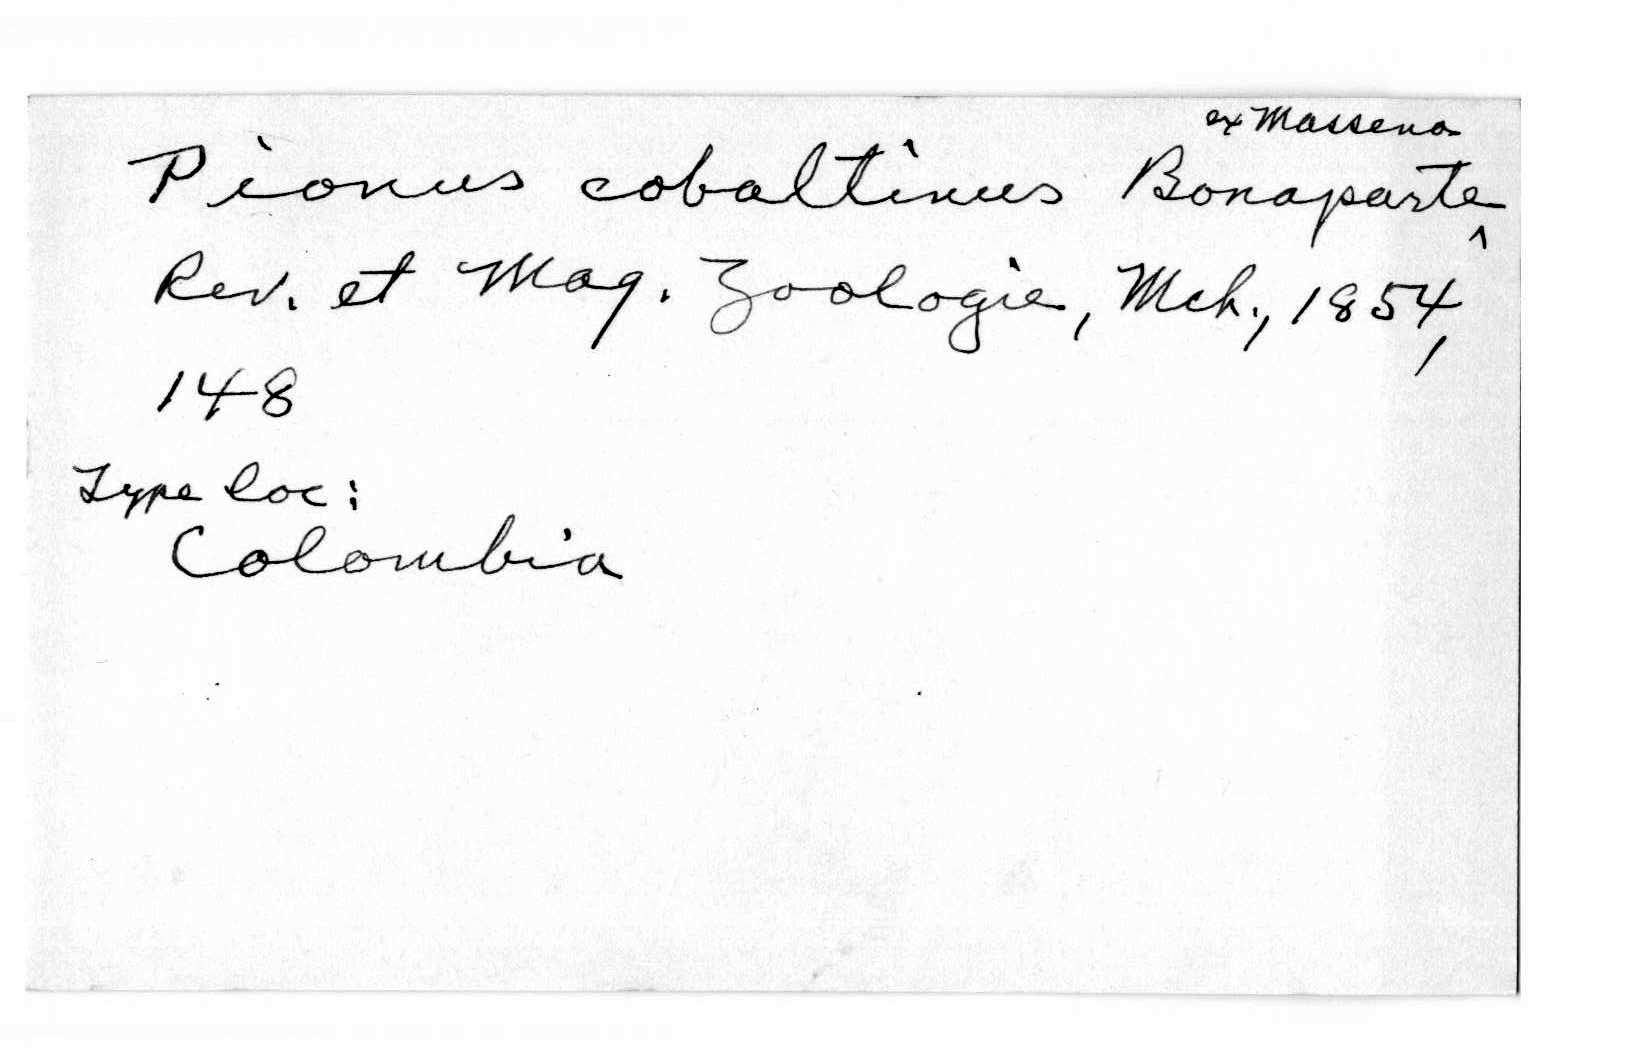 ex Massena
Pionus cobaltinus Bonaparte ^
Rev. et Mag. Zoologie, Mch., 1854,
148
Type loc:
Colombia